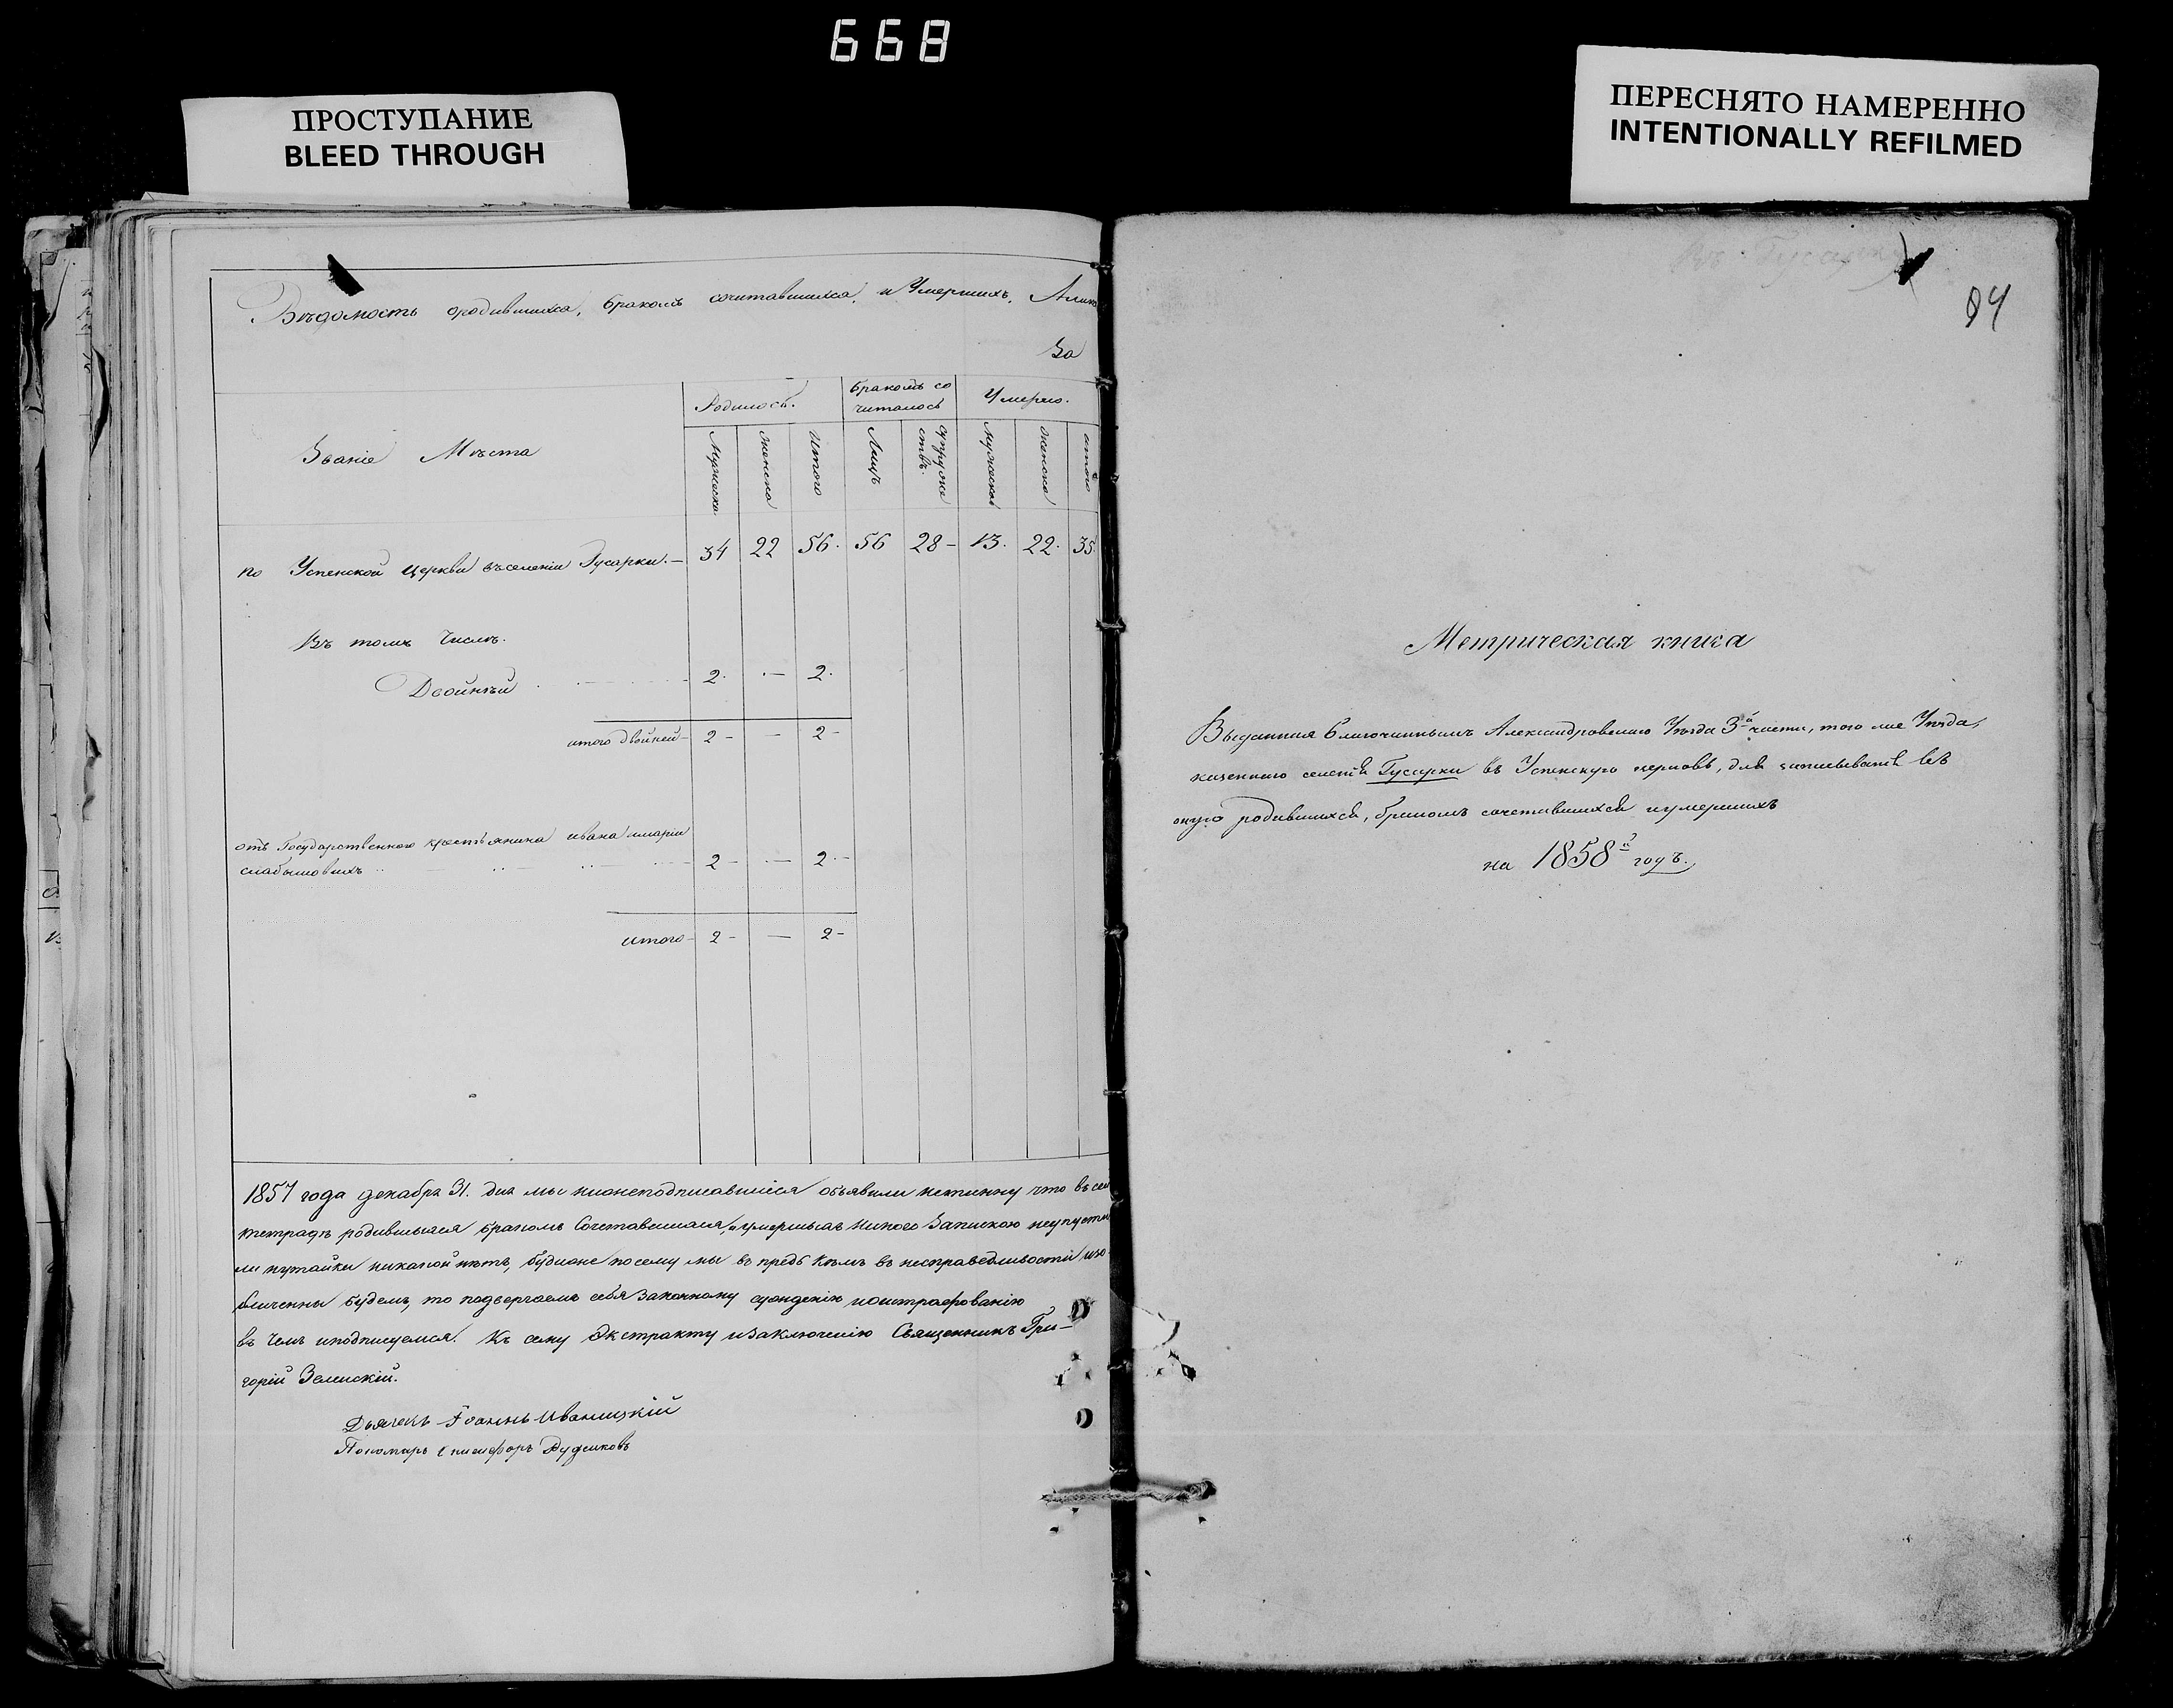 668
ПРОСТУПАНИЕ
BLEED THROUGH
ПЕРЕСНЯТО НАМЕРЕННО
INTENTIONALLY REFILMED
Вѣдомость ородившихся, бракомъ сочитавшихся, и Умершихъ,
За
Званіе Мѣста
Родилось.
бракомъ со
читалось
Умерло.
Мужеска
женска
Итого
Лицъ
супруже
ствъ.
мужеска
женска
итого
по Успенской Церкви въселеніи Гусарки. — 34 22 56. 56 28 — 13. 22. 35.
Въ томъ Числѣ.
Двойнѣй 2. — 2.
итого двойней — 2 — — 2 —
отъ Государственного крестьянина ивана имаріи
2 — — 2 —
итого — 2 — — 2 —
1857 года декабря 31. дня мы нижеподписавшіеся объявили неминну что въ сей
тетрадѣ родившыхся бракомъ Сочетавшихся, иумершыхъ никого Запискою неупусти
ли иутайки никакой нѣтъ, будиже посему мы въ предь кѣмъ въ несправедливостіи изо
бличенны будемъ, то подвергаемъ себя Законному сужденію иоштрафованію
въ Чемъ иподписуемся. Къ сему Экстракту изаключенію Священникъ Гри—
горій Зелинскій.
Дьячекъ Іоаннъ Иваницкій
Пономарь
въ Гусарк
94
Метрическая книга
Выданная благочиннымъ Александровскаго Уѣзда 3й части, того же Уѣзда,
казенного селенія Гусарки въ Успенскую церковь, для записыванія въ
оную родившихся, бракомъ сочетавшихся иумершихъ
на 1858й годъ.